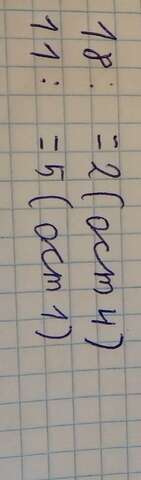 18 : = 2 (ост 4)
11 : = 5 (ост 1)